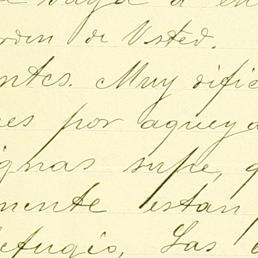 vaya a en
orden de Usted.
ntes. Muy dific
es por aqueya
ignas supe, q
mente estan
efugio, Las